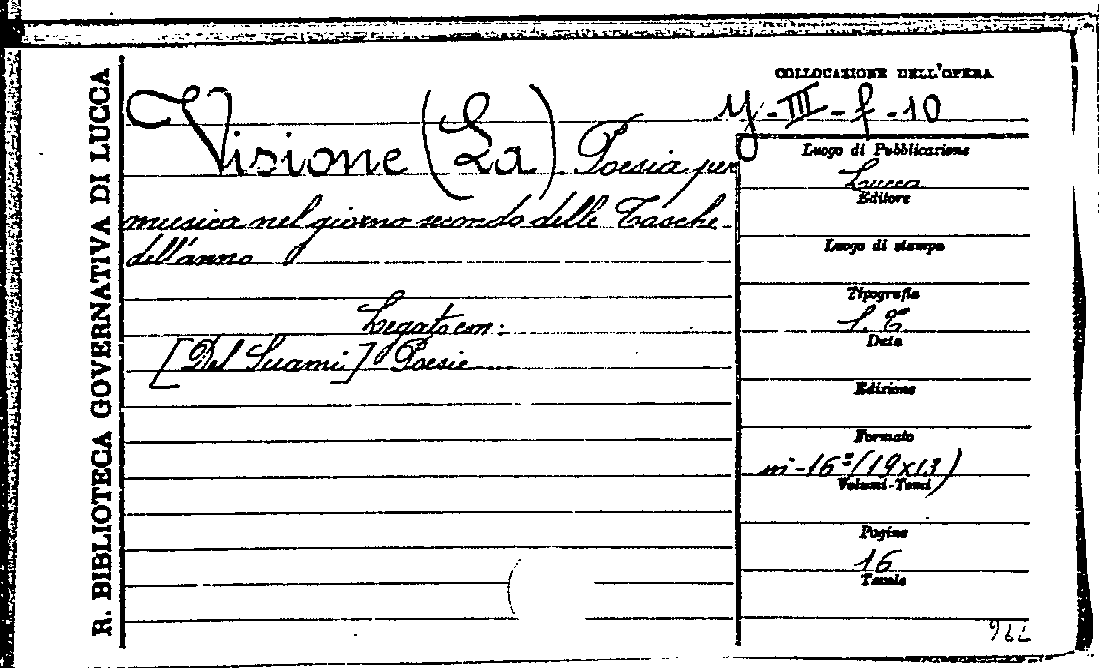 R. BIBLIOTECA GOVERNATIVA DI LUCCA
COLLOCAZIONE DELL'OPERA
y-III-f-10
Visione (La) Poesia per
musica nel giorno secondo delle Tasche
dell'anno
Legato con:
[Del Suami] Poesie....
Luogo di Pubblicazione
Lucca
Editore
Luogo di stampa
Tipografia
S. T
Data
Edizione
Formato
in-16º (19x13)
Volumi-Tomi
Pagine
16
Tavole